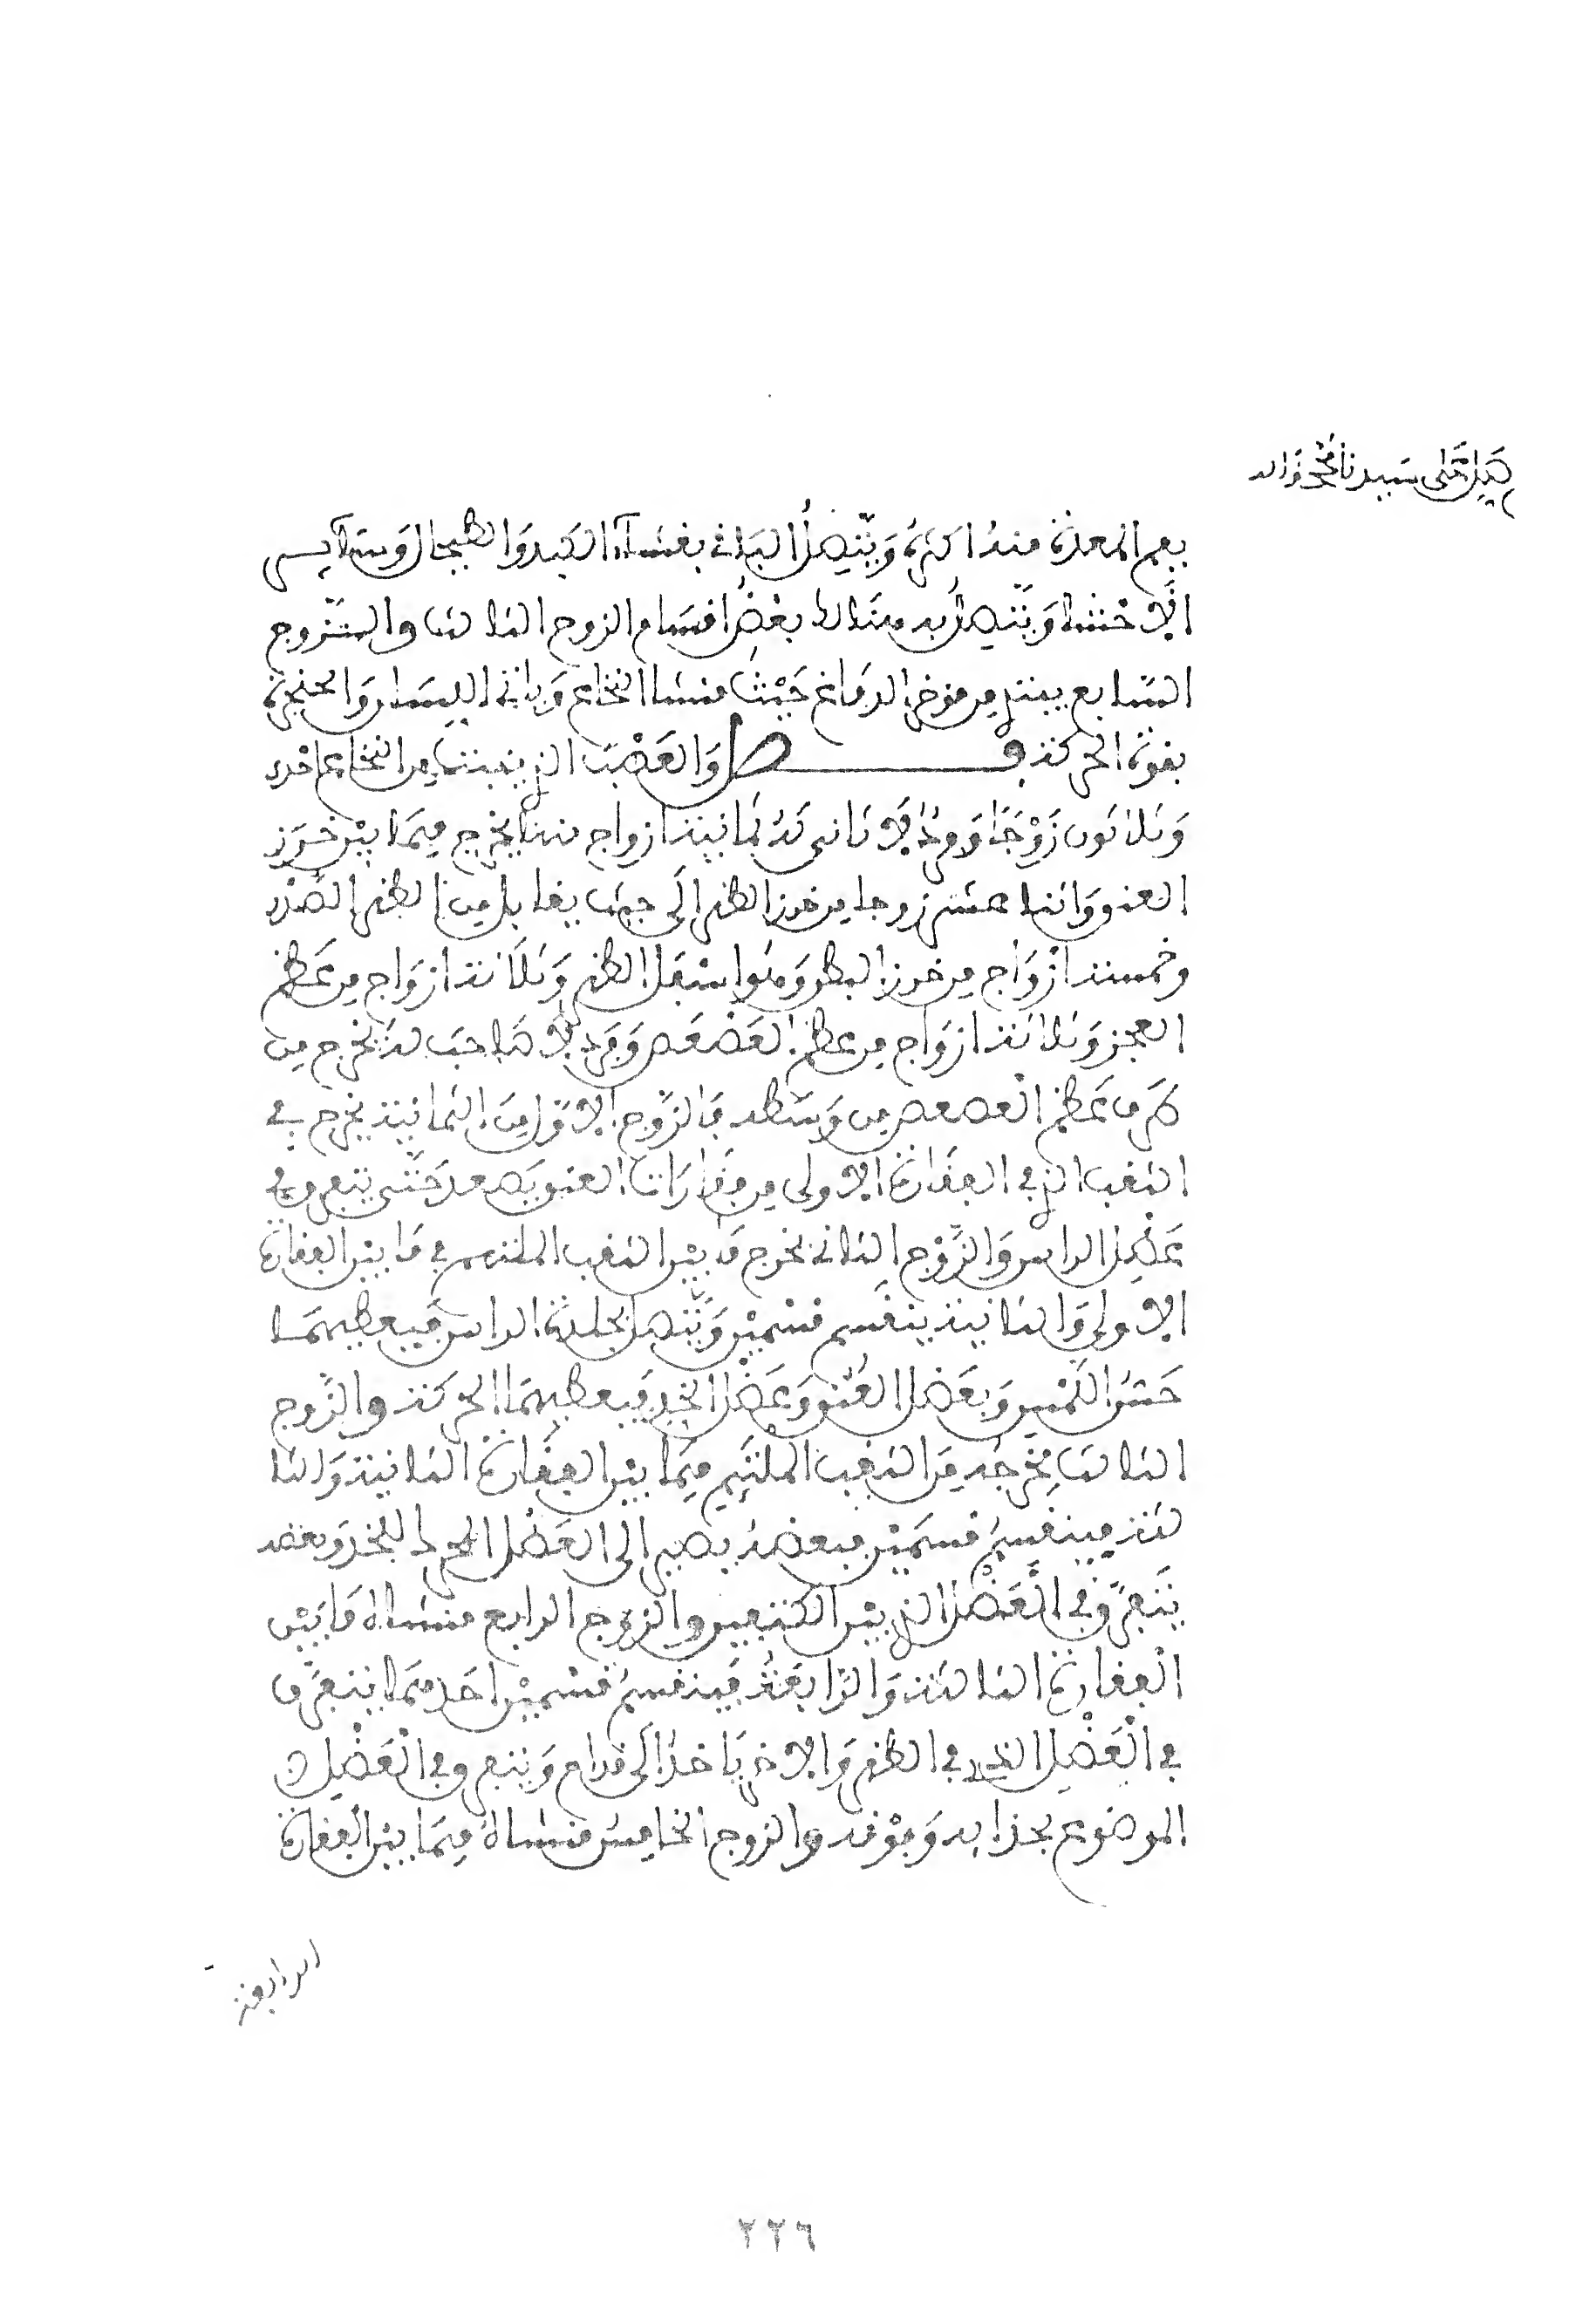 صل على سيدنا محمد واله
بفم المعدة منه اكثره ويتصل الباقي بغشاء الكبد والطحال وسائر
الاحشا ويتصل به هنالك بعض اقسام الزوج الثالث والزوج
السابع ينبت من مؤخر الدماغ حيث منشا النخاع وياتي اللسان والحنجرة
بقوة الحركة فصل والعصب الذي ينبت من النخاع احد
وثلاثون زوجا وفرد لا ثاني له ثمانية ازواج منها يخرج فيما بين خرز
العنق واثنا عشر زوجا من خرز الظهر الى حيث يقابل من الظهر الصدر
وخمسة ازواج من خرز البطن وهو اسفل الظهر وثلاثة ازواج من عظم
العجز وثلاثة ازواج من عظم العصعص وفرد لا صاحب له يخرج من
طرف عظم العصعص من وسطه فالزوج الاول من الثمانية يخرج في
الثقب الذي في الفقارة الاولى من فقارات العنق ويصعد حتى يتفرق في
عضل الراس والزوج الثاني يخرج ما بين الثقب الملتئم في ما بين الفقارة
الاولى والثانية ينقسم قسمين ويتصل بجلدة الراس فيعطيهما
حس اللمس وبعضل العنق وعضل الخد فيعطيهما الحركة والزوج
الثالث مخرجه من الثقب الملتئم فيما بين الفقارة الثانية والثا
لثة فينقسم قسمين فبعضه يصير الى العضل المحرك للخد وبعضه
يتفرق في العضل الذي بين الكتفين والزوج الرابع منشاه ما بين
الفقارة الثالثة والرابعة فينقسم قسمين احدهما يتفرق
في العضل الذي في الظهر والاخر ياخذ الى قدام ويتفرق في العضل
الموضوع بحذايه وفوقه والزوج الخامس منشاه فيما بين الفقارة
الرابعة
٢٢٦